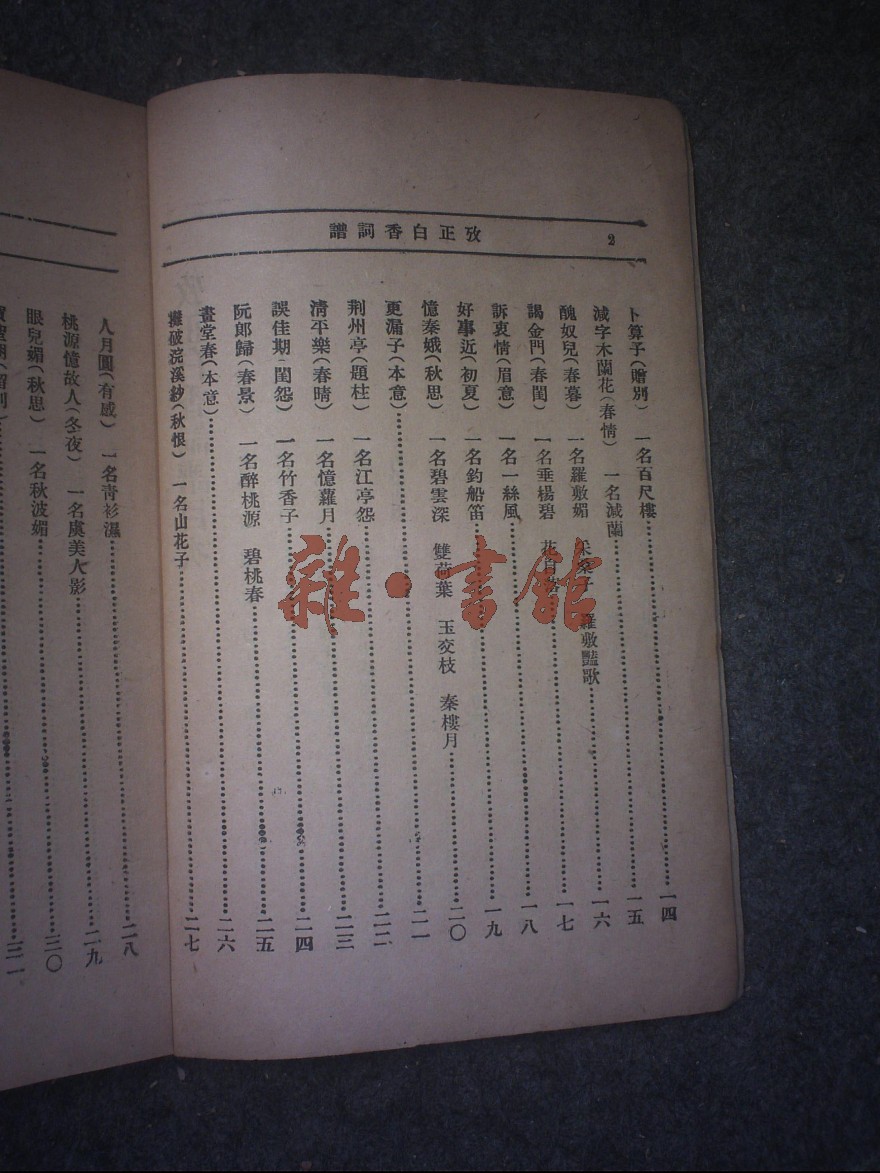 2
攷正白香詞譜
卜算子(贈別) 一名百尺樓 一四
減字木蘭花(春情) 一名減蘭 一五
醜奴兒(春暮) 一名羅敷媚 采桑子 羅敷豔歌 一六
謁金門(春閨) 一名垂楊碧 花自落 一七
訴衷情(眉意) 一名一絲風 一八
好事近(初夏) 一名釣船笛 一九
憶秦娥(秋思) 一名碧雲深 雙荷葉 玉交枝 秦樓月 二〇
更漏子(本意) 二一
荆州亭(題柱) 一名江亭怨 二二
清平樂(春晴) 一名憶蘿月 二三
誤佳期(閨怨) 一名竹香子 二四
阮郎歸(春景) 一名醉桃源 碧桃春 二五
畫堂春(本意) 二六
攤破浣溪紗(秋恨) 一名山花子 二七
人月圓(有感) 一名青衫濕 二八
桃源憶故人(冬夜) 一名虞美人影 二九
眼兒媚(秋思) 一名秋波媚 三〇
聖朝(留別) 三一
雜·書館